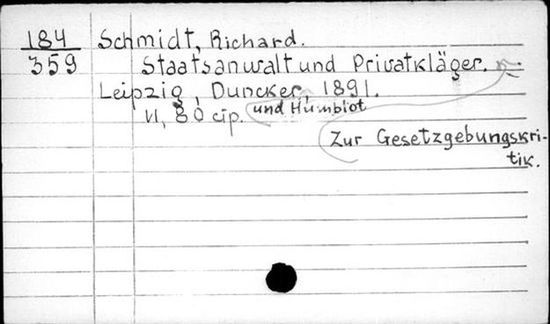 184 Schmidt, Richard.
359 Staatsanwalt und Privatkläger.
Leipzig, Duncker, 1891.
und Humblot
VI, 80 cip.
Zur Gesetzgebungskri-
tik.